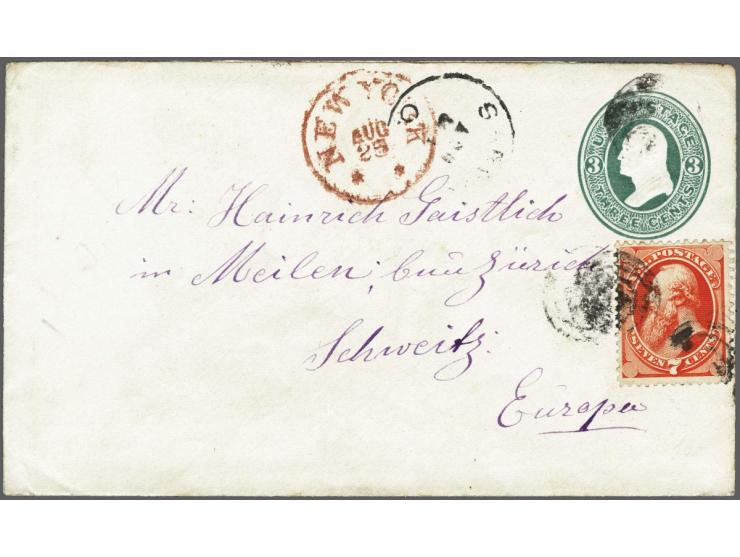 NEW YORK
AUG
25
U.S. POSTAGE
3 3
THREE CENTS
Mr: Hainrich Gaistlich
in Meilen; bei Zürich
Schweitz:
Europa
U.S. POSTAGE
SEVEN 7 CENTS